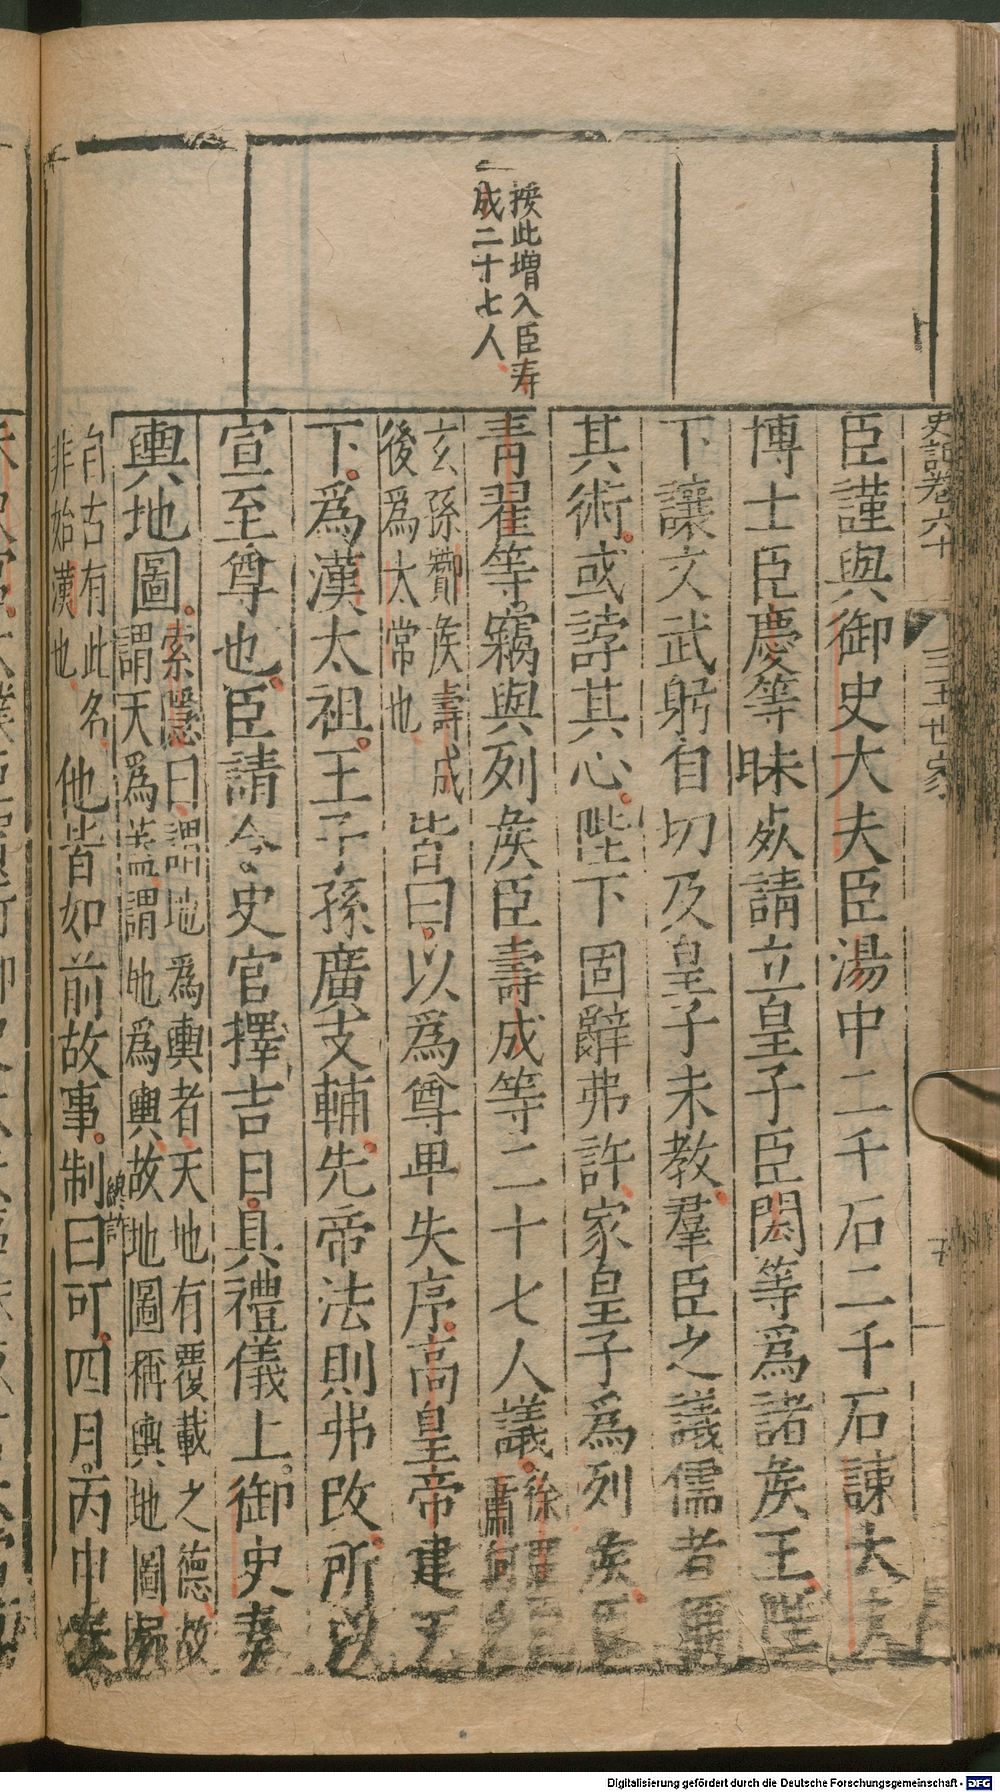 史記卷六十
三王世家
按此增入臣寿
成二十七人
臣謹與御史大夫臣湯中二千石二千石諫大夫
博士臣慶等昧死請立皇子臣閎等爲諸矦王陛
下讓文武躬自切及皇子未教羣臣之議儒者
其術或誖其心陛下固辭弗許家皇子爲列矦臣
青翟等竊與列矦臣壽成等二十七人議徐
蕭何
玄孫酇矦壽成
後爲太常也
皆曰以爲尊卑失序高皇帝建天
下爲漢太祖王子孫廣支輔先帝法則弗改所以
宣至尊也臣請令史官擇吉日具禮儀上御史奏
輿地圖
索隱曰謂地爲輿者天地有覆載之德故
謂天爲蓋謂地爲輿故地圖稱輿地圖
自古有此名
非始漢也
他皆如前故事制曰可四月丙申
總許
Digitalisierung gefördert durch die Deutsche Forschungsgemeinschaft - DFG